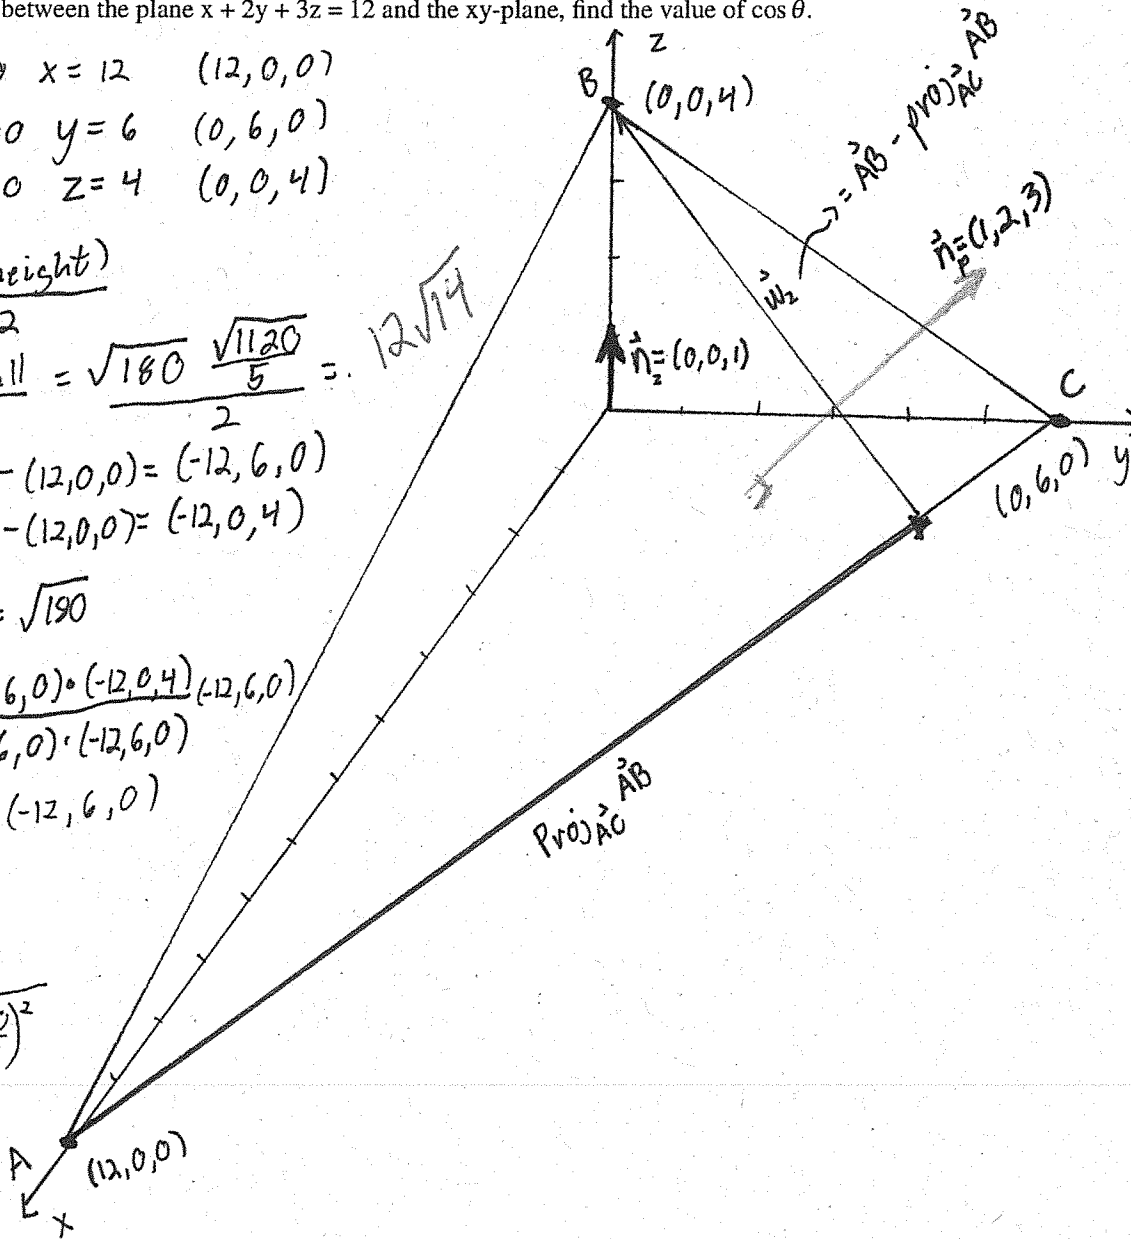 between the plane x + 2y + 3z = 12 and the xy-plane, find the value of cos θ.
x = 12 (12,0,0)
0 y = 6 (0,6,0)
0 z = 4 (0,0,4)
eight)
2
|| = √180 √1120/5 / 2 = . 12√14
-(12,0,0) = (-12,6,0)
-(12,0,0) = (-12,0,4)
= √180
6,0)·(-12,0,4) (-12,6,0)
6,0)·(-12,6,0)
(-12,6,0)
)²
z
B (0,0,4)
= AB⃗ - proj AC⃗ AB⃗
n⃗p = (1,2,3)
w⃗₂
n⃗z = (0,0,1)
C
(0,6,0) y
Proj AC⃗ AB⃗
A (12,0,0)
x